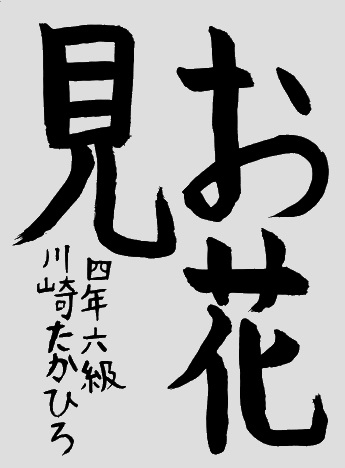 お花
見
四年六級
川崎たかひろ